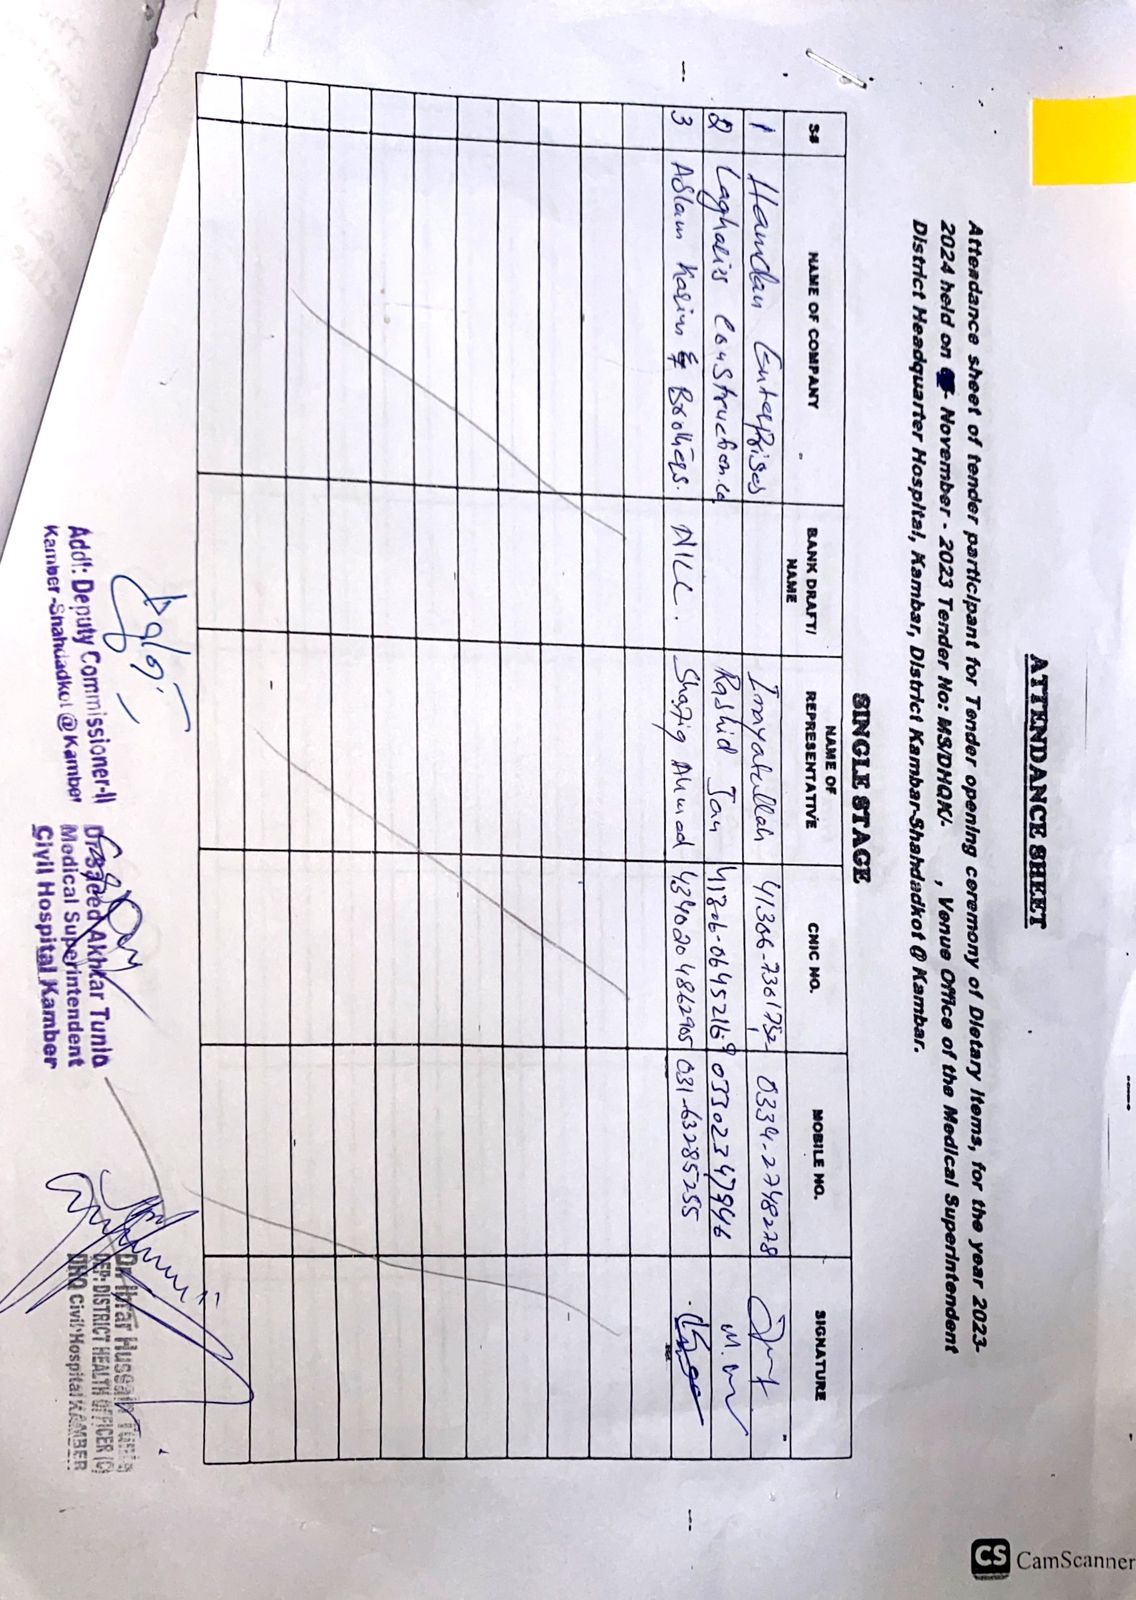 ATTENDANCE SHEET
Atteadance sheet of tender participant for Tender opening ceremony of Dietary Items, for the year 2023-
2024 held on - November - 2023 Tender No: MS/DHQK/- , Venue Office of the Medical Superintendent
District Headquarter Hospital, Kambar, District Kambar-Shahdadkot @ Kambar.
SINGLE STAGE
S# NAME OF COMPANY BANK DRAFT/ NAME NAME OF REPRESENTATIVE CNIC NO. MOBILE NO. SIGNATURE
1 Hamdan Enterprises Inayatullah 41306-7361752 0334-2748278
2 Lagharis Construction.co Rashid Jan 0330234
3 Aslam Kasim & Brothers. NILL. Shafiq Ahmad 4340204862905 031-63285255
Addl: Deputy Commissioner-II
Kamber-Shahdadkot @ Kamber
Dr. Saeed Akhtar Tunio
Medical Superintendent
Civil Hospital Kamber
Dr. Ibrar Hussain Tunio
DEP: DISTRICT HEALTH OFFICER (C)
DHQ Civil Hospital KAMBER
CS CamScanner